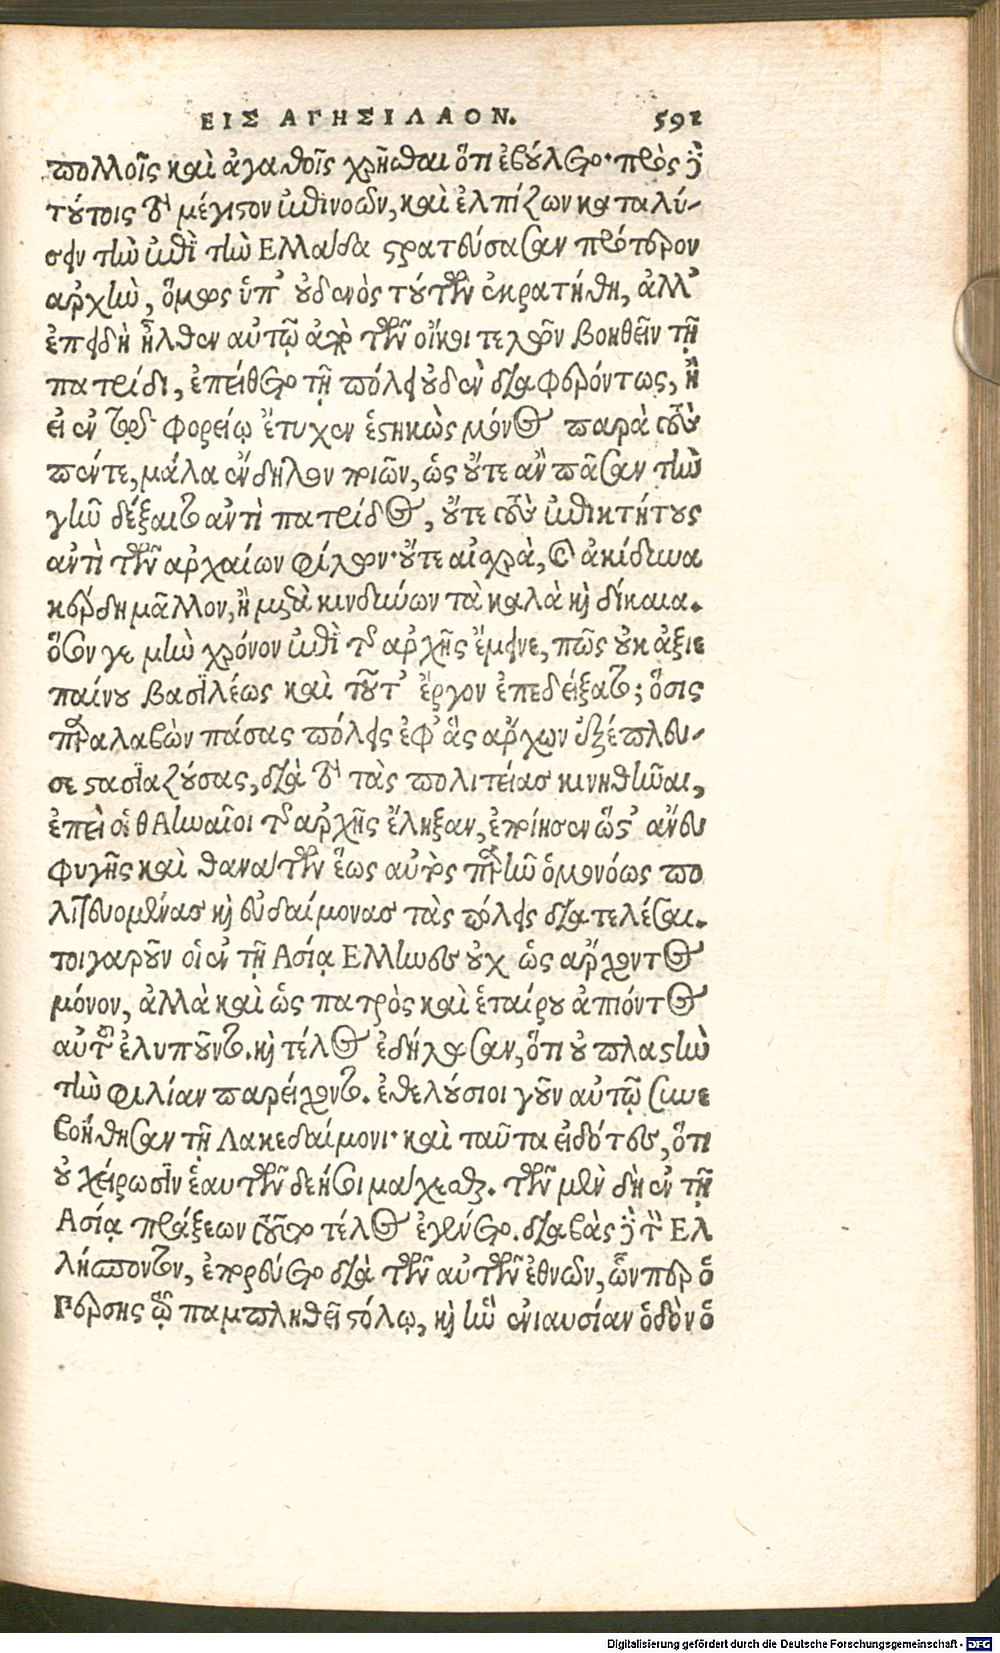 ΕΙΣ ΑΓΗΣΙΛΑΟΝ. 591
πολλοῖς καὶ ἀγαθοῖς χρῆσθαι ὅτι ἐβούλετο· πρὸς δὲ
τούτοις τὸ μέγιστον ἐπινοῶν, καὶ ἐλπίζων καταλύ-
σειν τὴν ἐπὶ τὴν Ἑλλάδα στρατεύσασαν πρότερον
ἀρχὴν, ὅμως ὑπ' οὐδενὸς τούτων ἐκρατήθη, ἀλλ'
ἐπειδὴ ἦλθεν αὐτῷ ἀπὸ τῶν οἴκοι τελῶν βοηθεῖν τῇ
πατρίδι, ἐπείθετο τῇ πόλει οὐδὲν διαφερόντως, ἢ
εἰ ἐν τῷ ἐφορείῳ ἔτυχεν ἑστηκὼς μόνος παρὰ τοὺς
πέντε, μάλα ἔνδηλον ποιῶν, ὡς οὔτε ἂν πᾶσαν τὴν
γῆν δέξαιτο ἀντὶ πατρίδος, οὔτε τοὺς ἐπικτήτους
ἀντὶ τῶν ἀρχαίων φίλων· οὔτε αἰσχρὰ, καὶ ἀκίδυνα
κέρδη μᾶλλον, ἢ μετὰ κινδύνων τὰ καλὰ καὶ δίκαια.
ὅσον γε μὴν χρόνον ἐπὶ τῆς ἀρχῆς ἔμεινε, πῶς οὐκ ἀξιε
παίνου βασιλέως καὶ τοῦτ' ἔργον ἐπεδείξατο; ὅστις
παραλαβὼν πάσας πόλεις ἐφ' ἃς ἄρξων ἐξέπλευ-
σε στασιαζούσας, διὰ τὸ τὰς πολιτείας κινηθῆναι,
ἐπεὶ οἱ θΑηναῖοι τῆς ἀρχῆς ἔληξαν, ἐποίησεν ὥστ' ἄνευ
φυγῆς καὶ θανάτων ἕως αὐτὸς παρῆν ὁμονόως πο
λιτευομένας καὶ εὐδαίμονας τὰς πόλεις διατελέσαι.
τοιγαροῦν οἱ ἐν τῇ Ἀσίᾳ Ἕλληνες οὐχ ὡς ἄρχοντος
μόνον, ἀλλὰ καὶ ὡς πατρὸς καὶ ἑταίρου ἀπιόντος
αὐτοῦ ἐλυποῦντο. καὶ τέλος ἐδήλωσαν, ὅτι οὐ πλαστὴν
τὴν φιλίαν παρείχοντο. ἐθελούσιοι γοῦν αὐτῷ συνε
βοήθησαν τῇ Λακεδαίμονι· καὶ ταῦτα εἰδότες, ὅτι
οὐ χείρωσιν ἑαυτῶν δεήσοι μάχεσθαι. τῶν μὲν δὴ ἐν τῇ
Ἀσίᾳ πράξεων τοῦτο τέλος ἐγένετο. διαβὰς δὲ τὸν Ἑλ
λήσποντον, ἐπορεύετο διὰ τῶν αὐτῶν ἐθνῶν, ὧνπερ ὁ
Πέρσης τῷ παμπληθεῖ στόλῳ, καὶ ἣν ἐνιαυσίαν ὁδὸν ὁ
Digitalisierung gefördert durch die Deutsche Forschungsgemeinschaft - DFG